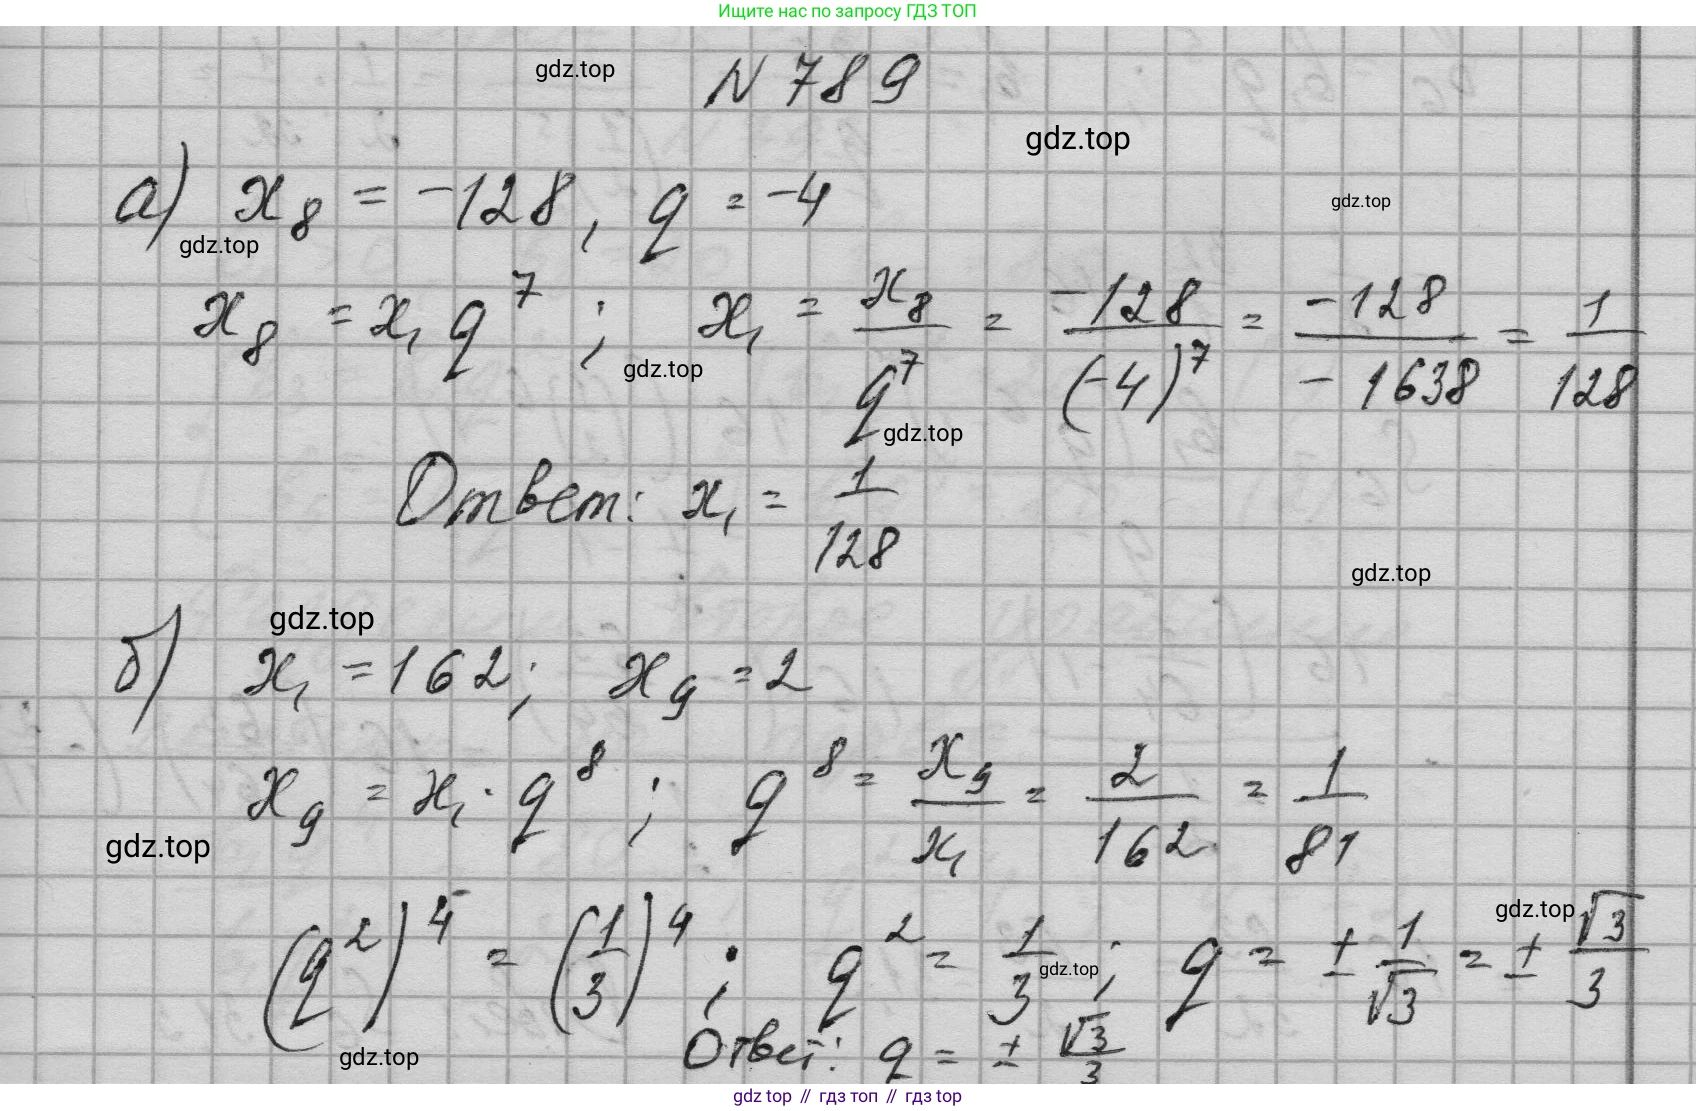 Ищите нас по запросу ГДЗ ТОП
gdz.top
N 789
gdz.top
а) x₈ = -128, q = -4
gdz.top
gdz.top
x₈ = x₁ q⁷ ; x₁ = x₈/q⁷ = -128/(-4)⁷ = -128/-1638 = 1/128
gdz.top
gdz.top
Ответ: x₁ = 1/128
gdz.top
gdz.top
б) x₁ = 162; x₉ = 2
x₉ = x₁ · q⁸ ; q⁸ = x₉/x₁ = 2/162 = 1/81
gdz.top
gdz.top
(q²)⁴ = (1/3)⁴ ; q² = 1/3 ; q = ± 1/√3 = ± √3/3
gdz.top
gdz.top
Ответ: q = ± √3/3
gdz top // гдз топ // гдз top